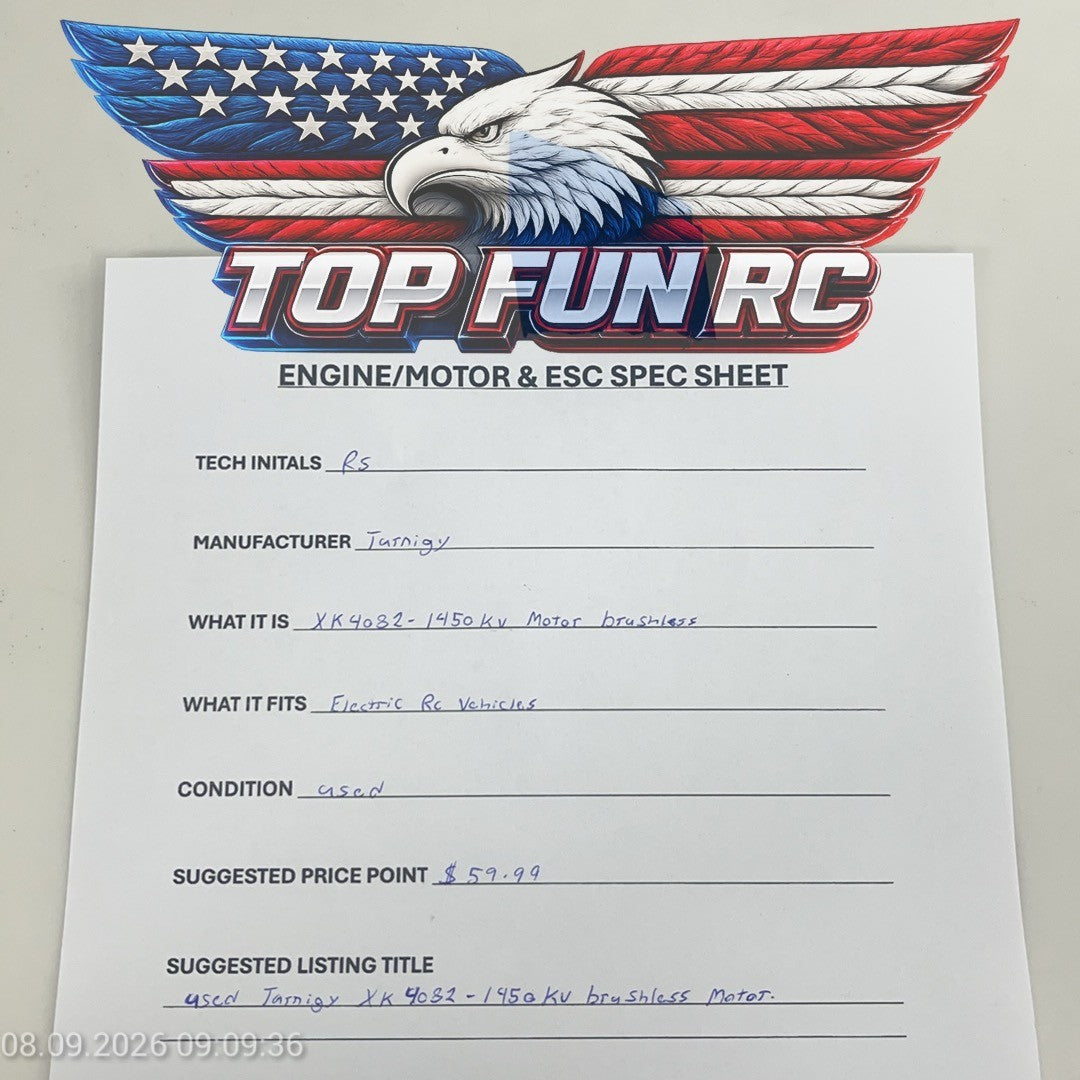 TOP FUN RC
ENGINE/MOTOR & ESC SPEC SHEET
TECH INITALS RS
MANUFACTURER Turnigy
WHAT IT IS XK4082-1450KV Motor brushless
WHAT IT FITS Electric Rc Vehicles
CONDITION used
SUGGESTED PRICE POINT $59.99
SUGGESTED LISTING TITLE
used Turnigy XK 4082-1450KV brushless Motor.
08.09.2026 09:09:36